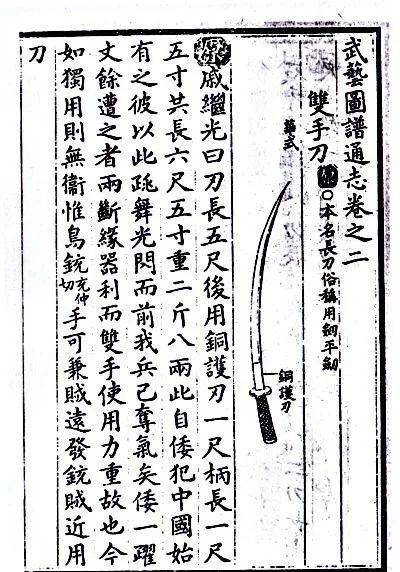 武藝圖譜通志卷之二
雙手刀○本名長刀俗稱用劒平劒
華式
銅護刃
戚繼光曰刀長五尺後用銅護刃一尺柄長一尺
五寸共長六尺五寸重二斤八兩此自倭犯中國始
有之彼以此跳舞光閃而前我兵已奪氣矣倭一躍
丈餘遭之者兩斷緣器利而雙手使用力重故也今
如獨用則無衞惟鳥銃充仲切手可兼賊遠發銃賊近用
刀